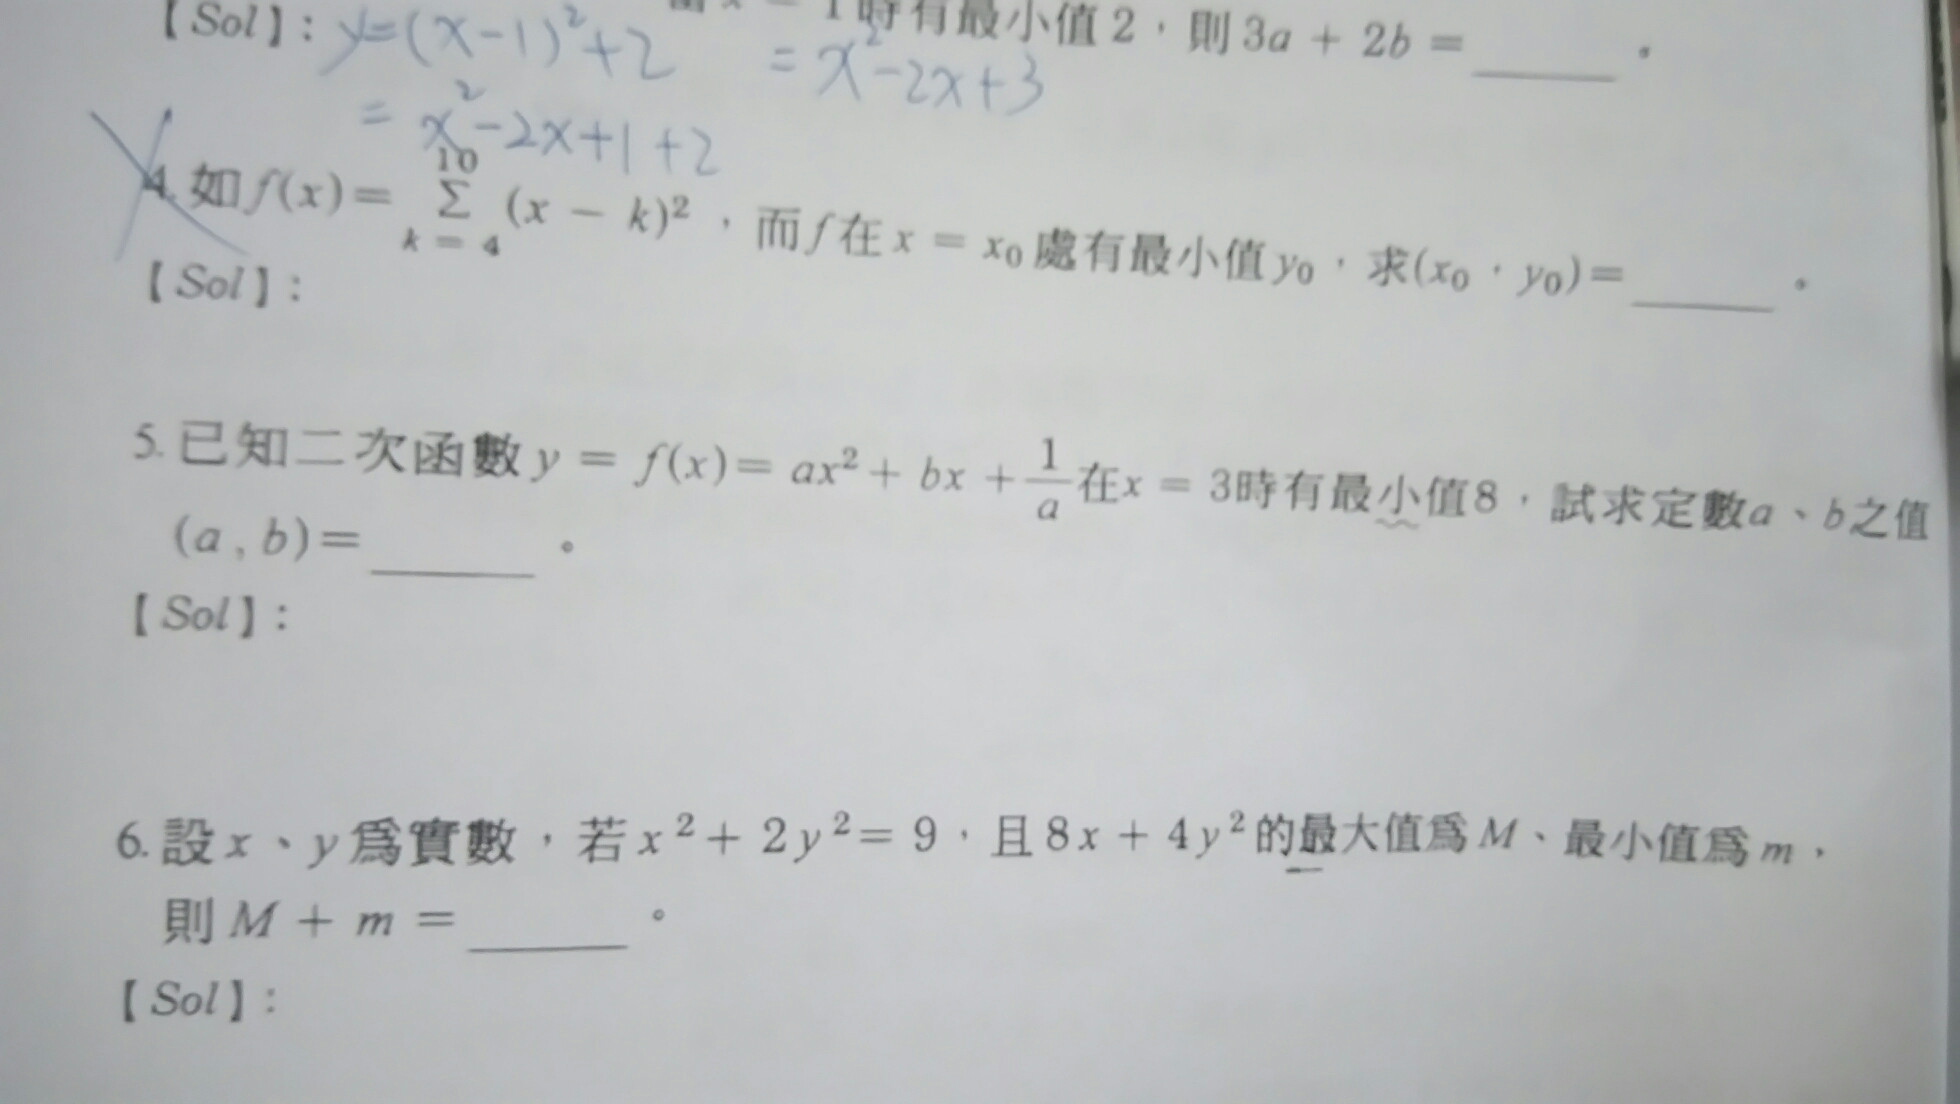 1時有最小值2，則3a + 2b = ____。
【Sol】: y=(x-1)²+2 = x²-2x+3
= x²-2x+1+2
4. 如f(x)= Σ_{k=4}^{10} (x - k)²，而f在x = x₀處有最小值y₀，求(x₀，y₀)= ____。
【Sol】:
5. 已知二次函數y = f(x)= ax² + bx + 1/a 在x = 3時有最小值8，試求定數a、b之值
(a , b)= ____。
【Sol】:
6. 設x、y為實數，若x² + 2y² = 9，且8x + 4y²的最大值為M、最小值為m，
則M + m = ____。
【Sol】: